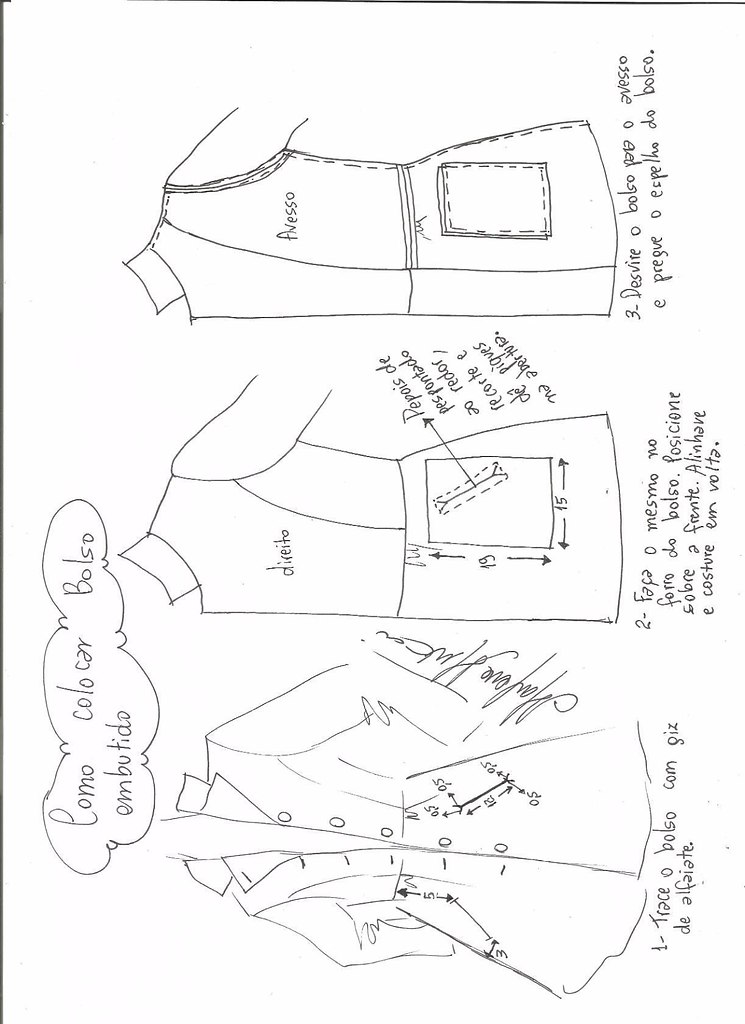 Como colocar Bolso
embutido
5
3
0,5
0,5
0,5
0,5
12
1- Trace o bolso com giz
de alfaiate.
direito
19
15
Depois de
pespontado
ao redor,
recorte e
dê piques
na abertura.
2- Faça o mesmo no
forro do bolso. Posicione
sobre a frente. Alinhave
e costure em volta.
Avesso
3- Desvire o bolso para o avesso
e pregue o espelho do bolso.